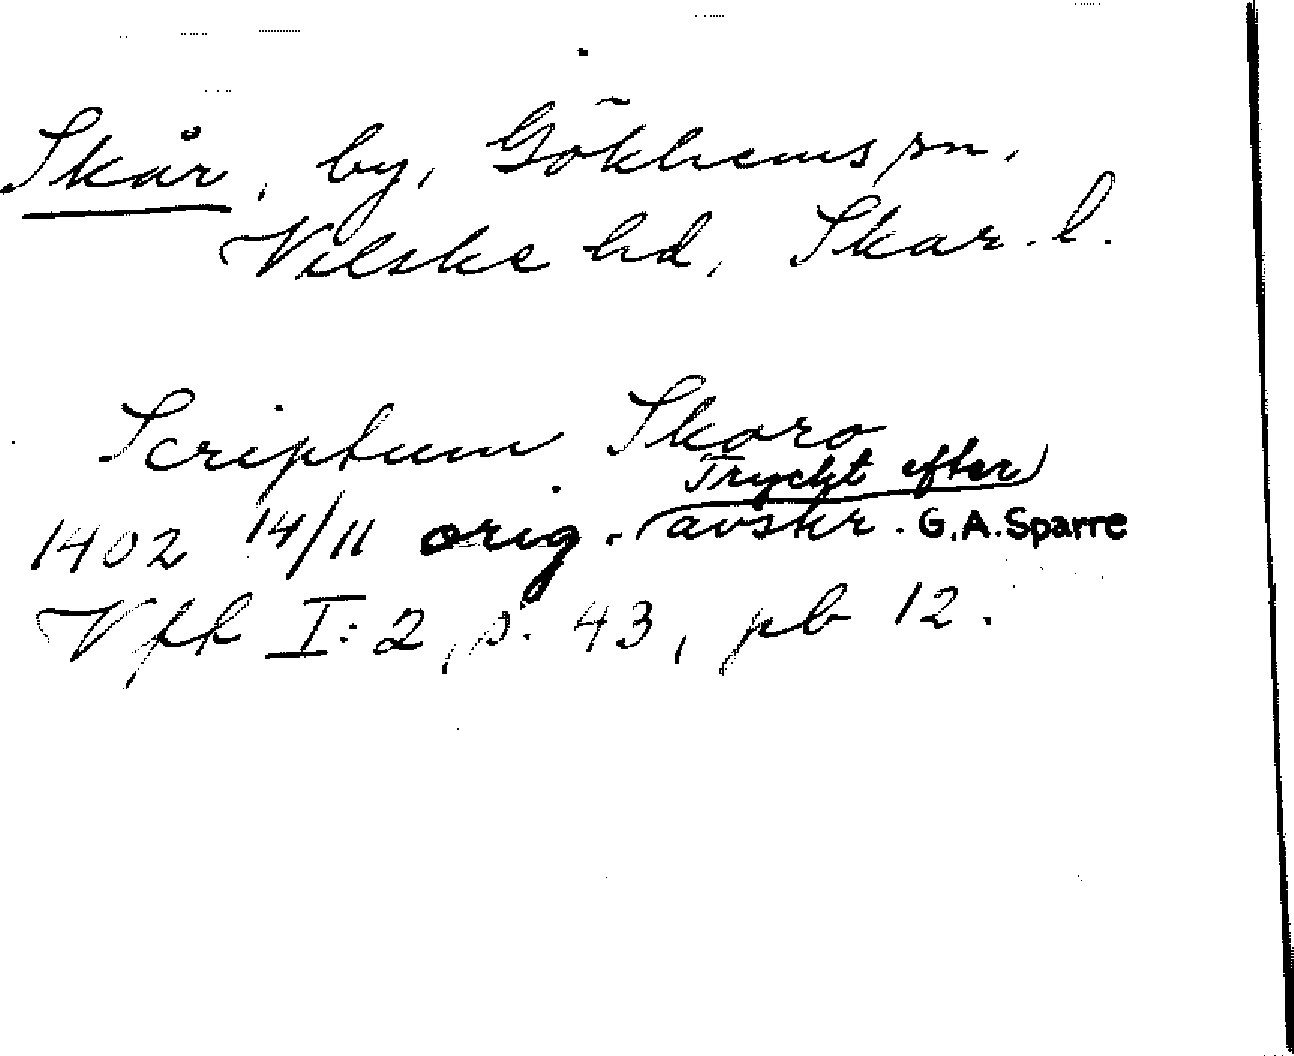 Skår, by, Gökhems sn,
Vilske hd, Skar. l.
Scriptum Skoro
Tryckt efter)
1402 14/11 orig. (avskr. G.A.Sparre
Vfk I:2, s. 43, pb 12.